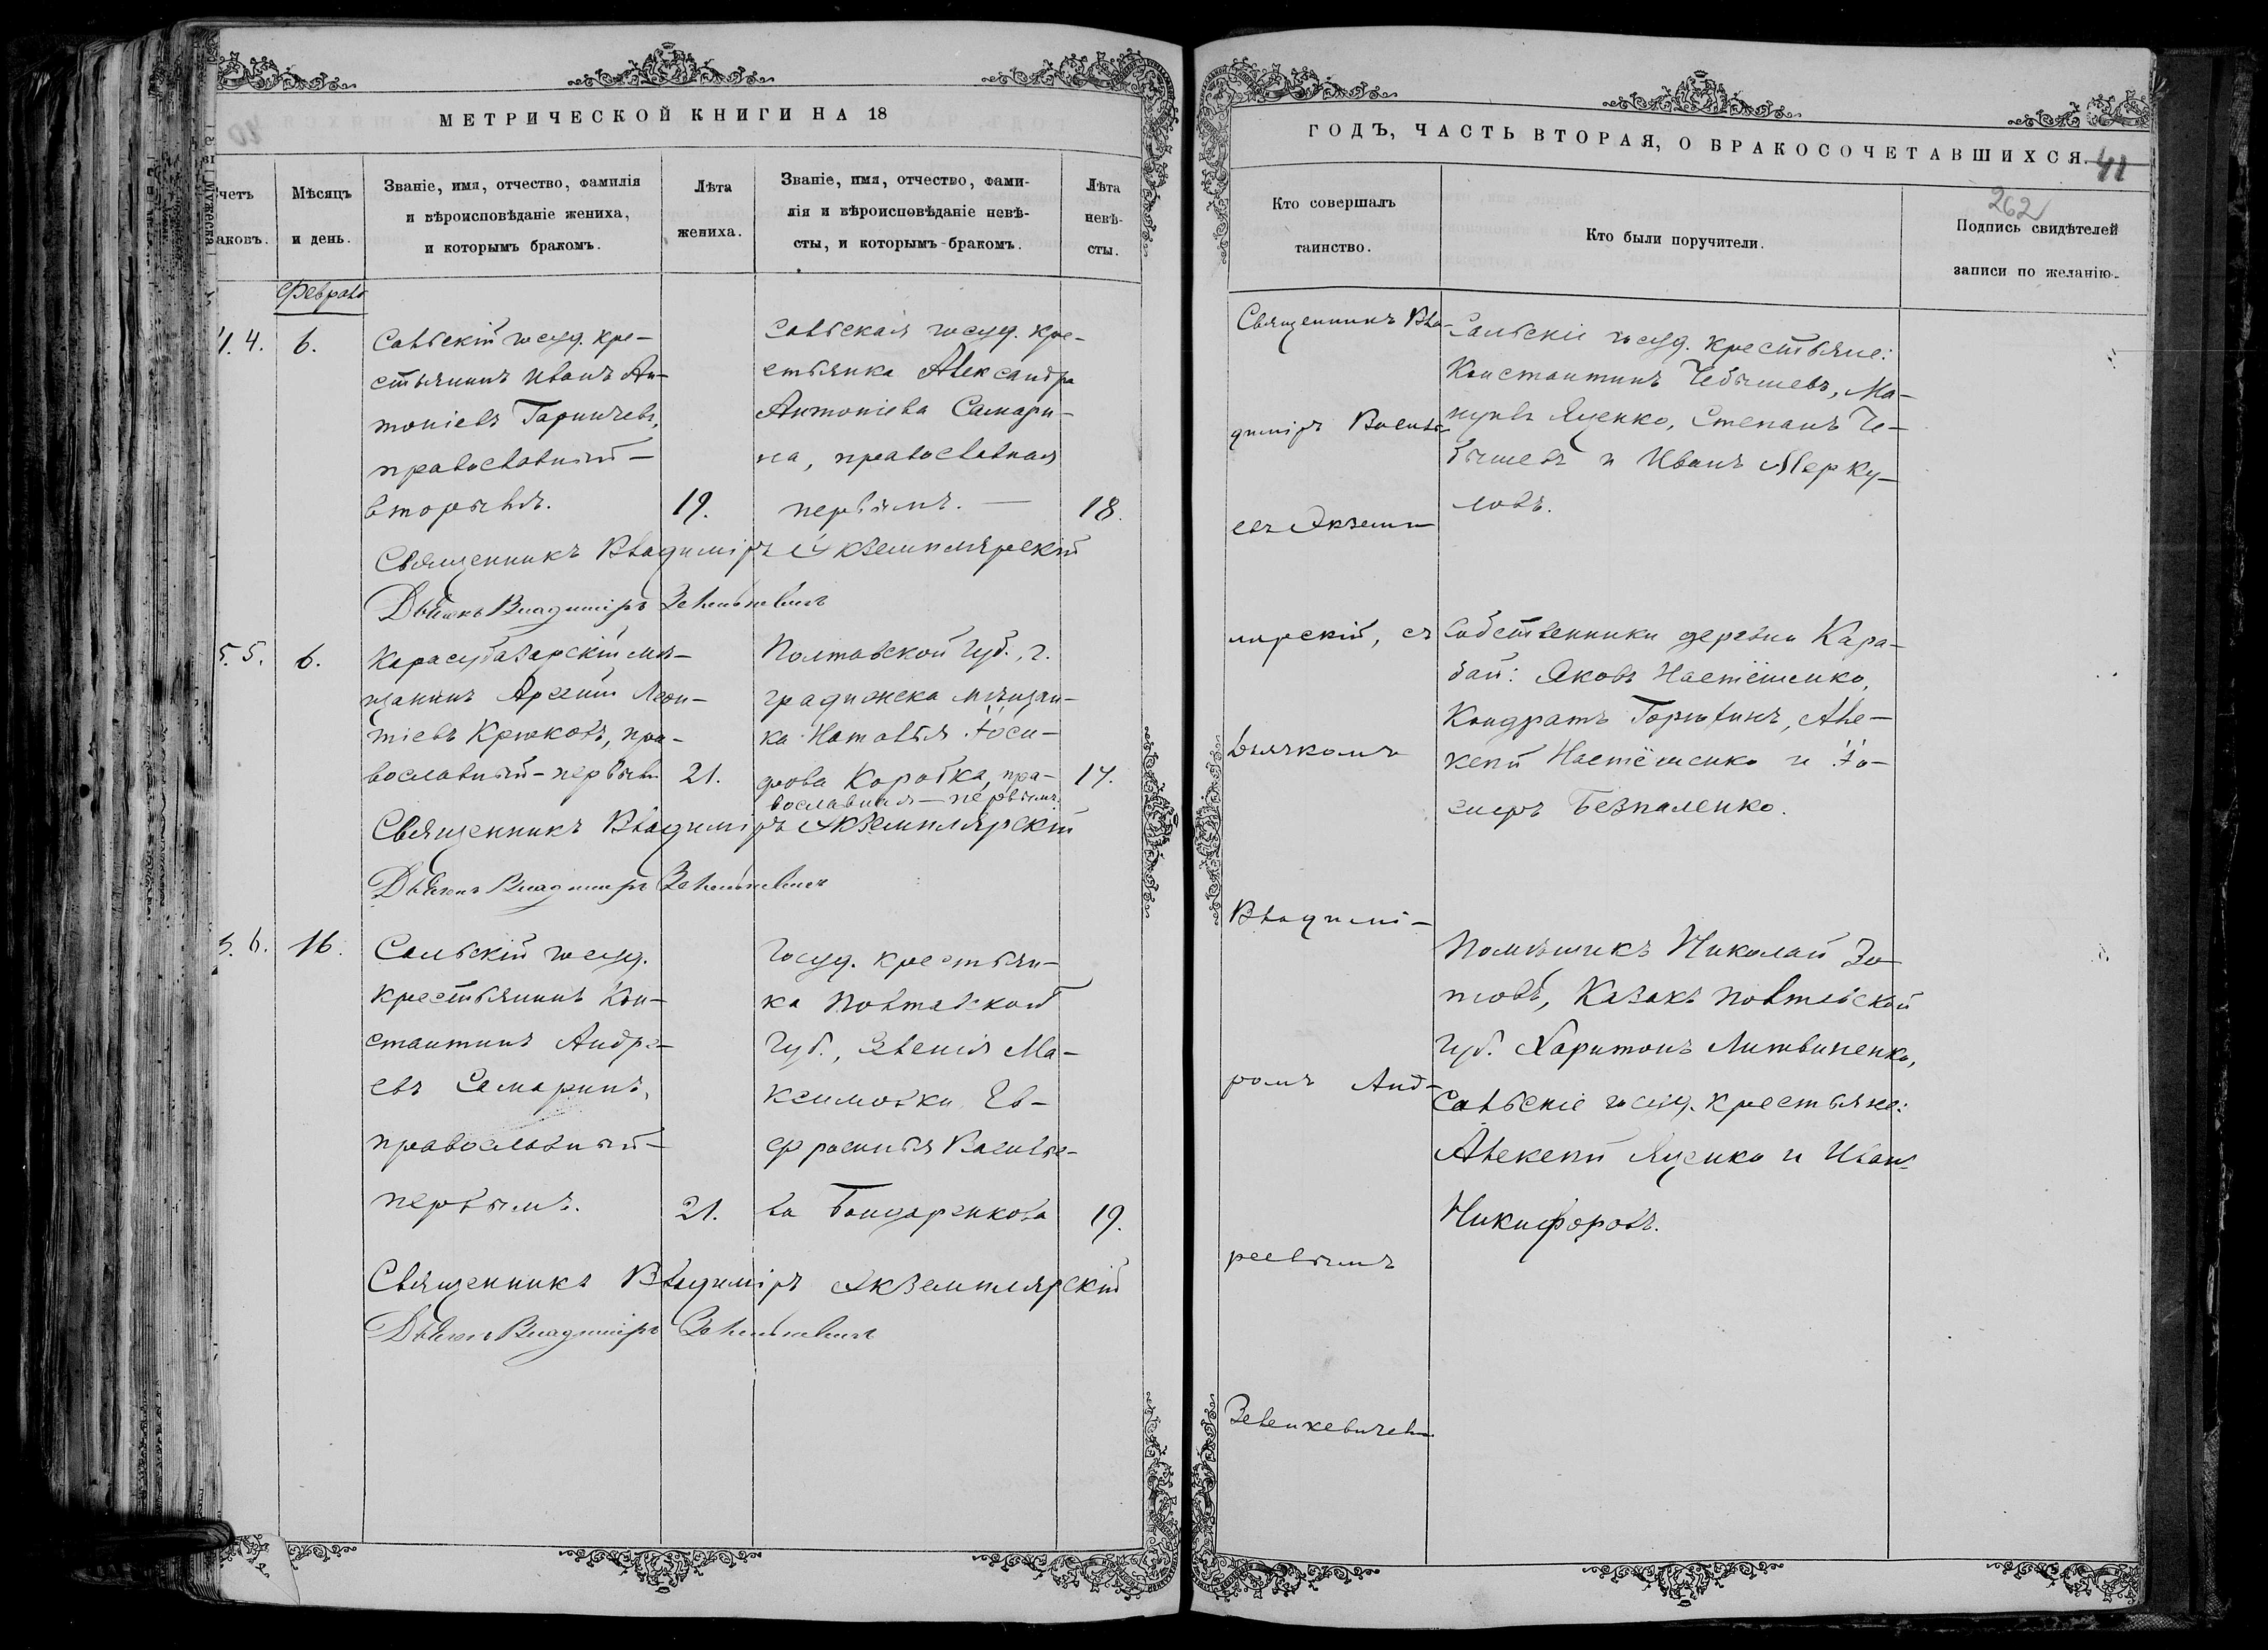 МЕТРИЧЕСКОЙ КНИГИ НА 18
четъ
аковъ.
Мѣсяцъ
и день.
Званіе, имя, отчество, фамилія
и вѣроисповѣданіе жениха,
и которымъ бракомъ.
Лѣта
жениха.
Званіе, имя, отчество, фами-
лія и вѣроисповѣданіе невѣ-
сты, и которымъ бракомъ.
Лѣта
невѣ-
сты.
Февраль
4. 4.
6.
Сальскій госуд. кре-
стьянинъ Иванъ Ан-
тоніевъ Гаринчевъ,
православный —
вторымъ.
19.
Сальская госуд. кре-
стьянка Александра
Антоніева Самари-
на, православная
первымъ. —
18.
Священникъ Владиміръ Экземплярскій
Дьячекъ Владиміръ Зеленкевичъ
5. 5.
6.
Карасубазарскій мѣ-
щанинъ Арсеній Леон-
тіевъ Крюковъ, пра-
вославный - первымъ
21.
Полтавской Губ., г.
Градижска мѣщан-
ка Наталья Іоси-
фова Коробка, пра-
вославная — первымъ.
17.
Священникъ Владиміръ Экземплярскій
Дьячекъ Владиміръ Зеленкевичъ
6.
16.
Сальскій госуд.
крестьянинъ Кон-
стантинъ Андре-
евъ Самаринъ,
православный —
первымъ.
21.
Госуд. крестьян-
ка Полтавской
Губ., Мa-
ксимовки Ев-
фросинья Василье-
ва Бондаренкова
19.
Священникъ Владиміръ Экземплярскій
Дьячекъ Владиміръ Зеленкевичъ
ГОДЪ, ЧАСТЬ ВТОРАЯ, О БРАКОСОЧЕТАВШИХСЯ.
41
262
Кто совершалъ
таинство.
Кто были поручители.
Подпись свидѣтелей
записи по желанію.
Священникъ Вла-
диміръ Василь-
евъ Экземп-
лярскій, съ
дьячкомъ
Владимі-
ромъ Анд-
реевымъ
Зеленкевичемъ
Сальскіе госуд. крестьяне:
Константинъ Чебышевъ, Ма-
нуилъ Яценко, Степанъ Че-
бышевъ и Иванъ Мерку-
ловъ.
Собственники деревни Кара-
бай: Яковъ Настёшенко,
Кондратъ Горютинъ, Але-
ксѣй Настёшенко и Іо-
сифъ Безпаленко.
Помѣщикъ Николай Зо-
товъ, Казакъ Полтавской
Губ. Харитонъ Литвиненко,
Сальскіе госуд. крестьяне:
Алексѣй Яценко и Иванъ
Никифоровъ.